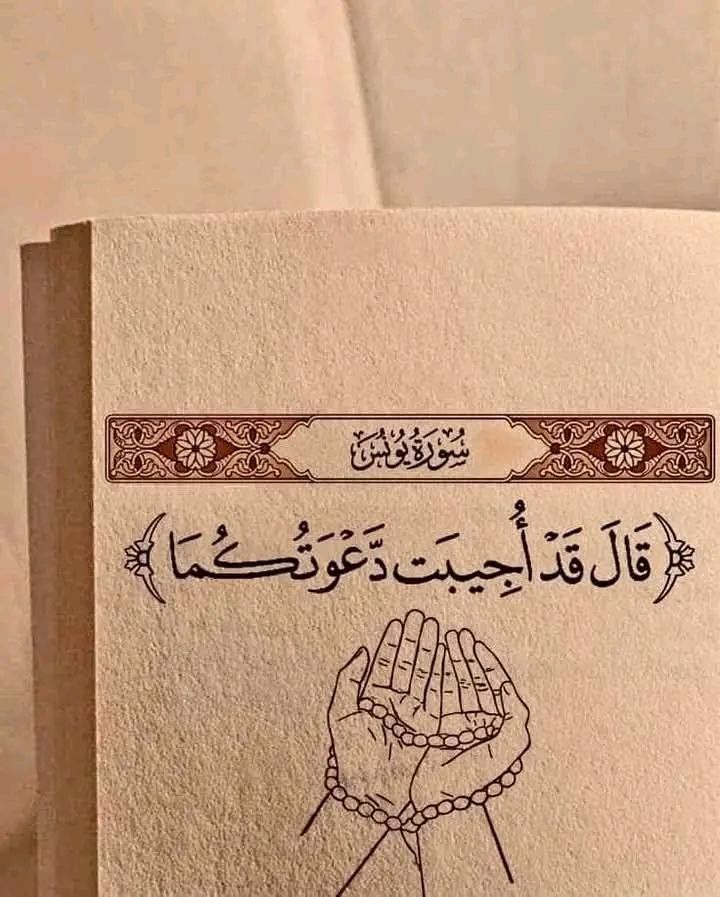 سُورَةُ يُونُسَ
﴿قَالَ قَدْ أُجِيبَت دَّعْوَتُكُمَا﴾